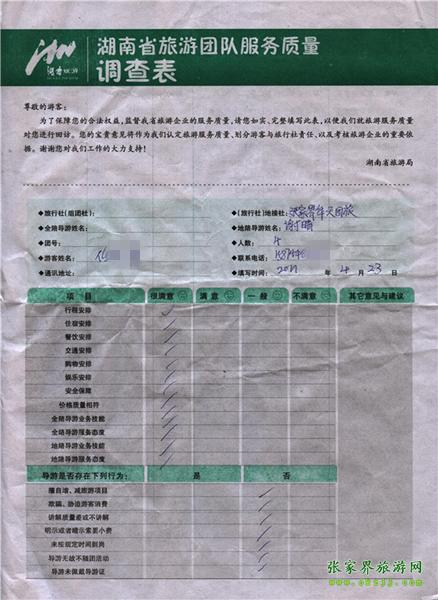 湖南旅游
湖南省旅游团队服务质量
调查表
尊敬的游客:
为了保障您的合法权益,监督我省旅游企业的服务质量,请您如实、完整填写此表,以便我们就旅游服务质量
对您进行回访。您的宝贵意见将作为我们认定旅游服务质量、划分游客与旅行社责任,以及考核旅游企业的重要依
据。谢谢您对我们工作的大力支持!
湖南省旅游局
◆旅行社(组团社): ◆(旅行社)地接社: 张家界中天国旅
◆全陪导游姓名: ◆地陪导游姓名: 谢
◆团号: ◆人数: 4
◆游客姓名: ◆联系电话:
◆通讯地址: ◆填写时间: 2011 年 4 月 23 日
项 目 很满意 满 意 一 般 不满意 其它意见与建议
行程安排
住宿安排
餐饮安排
交通安排
购物安排
娱乐安排
安全保障
价格质量相符
全陪导游业务技能
全陪导游服务态度
地陪导游业务技能
地陪导游服务态度
导游是否存在下列行为: 是 否
擅自增、减旅游项目
欺骗、胁迫游客消费
讲解质量差或不讲解
明示或者暗示索要小费
未按规定时间到岗
导游无故不随团活动
导游未佩戴导游证
张家界旅游网
www.okzjj.com